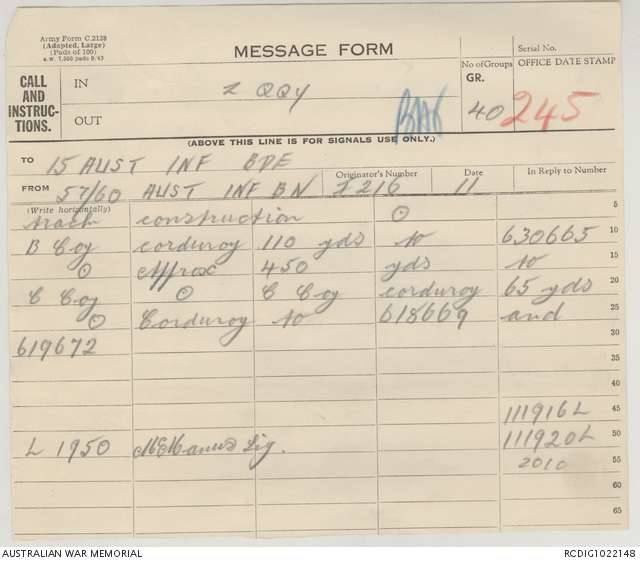 Army Form C.2128
(Adapted, Large)
(Pads of 100)
MESSAGE FORM
Serial No.
CALL AND INSTRUC-TIONS.
IN
Z QQY
No of Groups
GR.
OFFICE DATE STAMP
OUT
40
245
(ABOVE THIS LINE IS FOR SIGNALS USE ONLY.)
TO 15 AUST INF BDE
Originator's Number Date In Reply to Number
FROM 57/60 AUST INF BN I 216 11
(Write horizontally)
track construction ⊙ 5
B Coy corduroy 110 yds to 630665 10
⊙ Approx 450 yds to 15
C Coy ⊙ C Coy corduroy 65 yds 20
⊙ Corduroy to 618669 and 25
619672 30
35
40
111916L 45
L 1950 111920L 50
2010 55
65
AUSTRALIAN WAR MEMORIAL RCDIG1022148